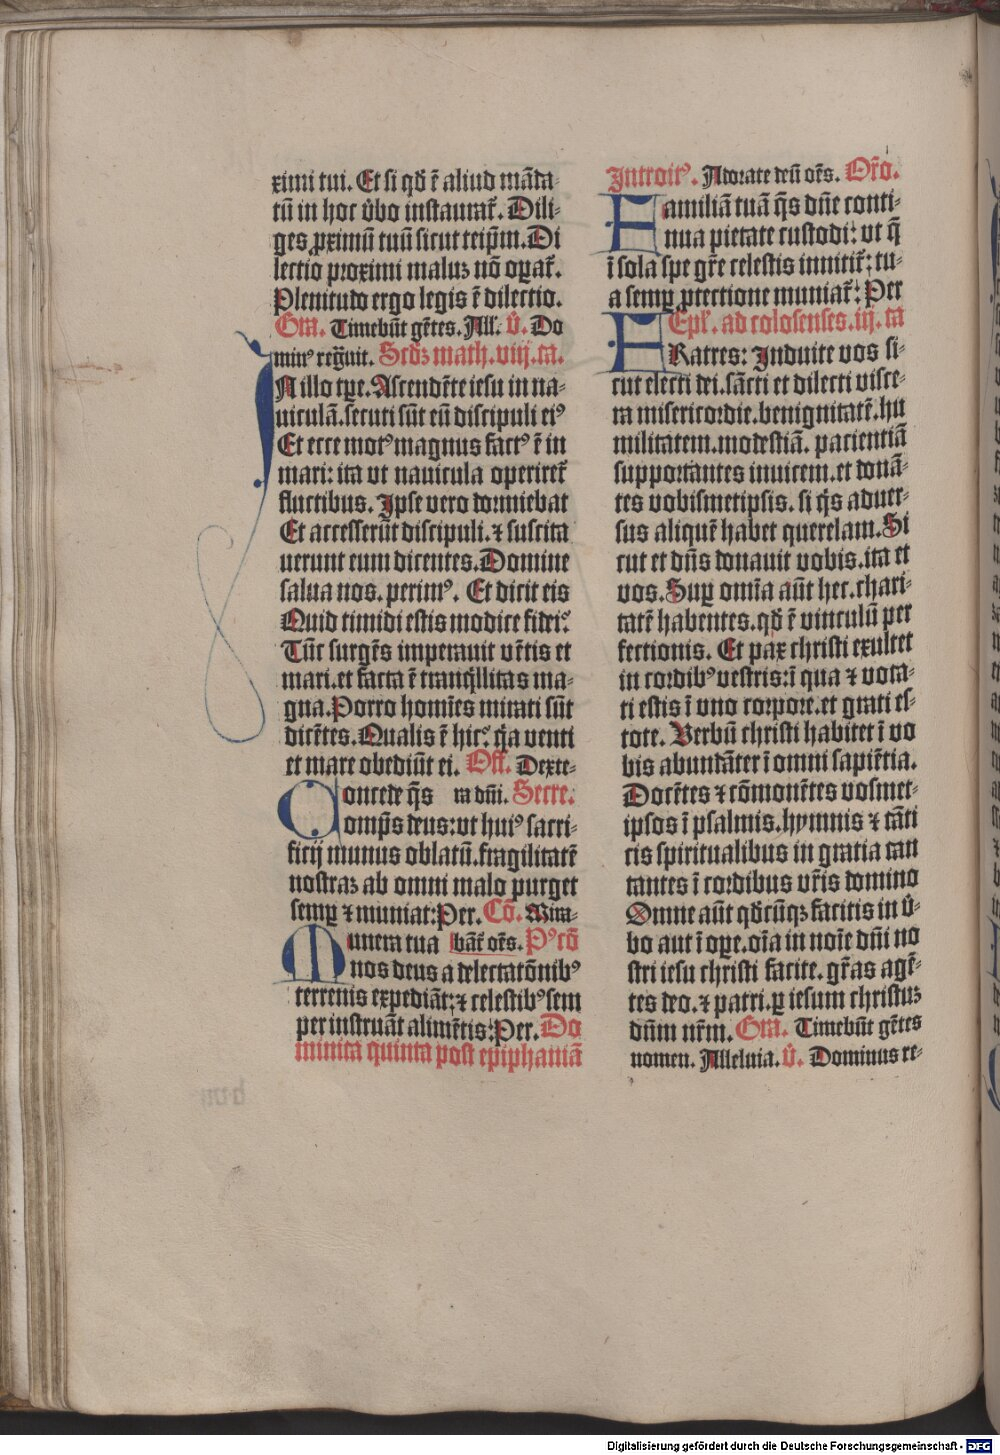 ximi tui. Et si qđ ē aliud māda-
tū in hoc v̓bo instaurat̄. Dili-
ges ꝓximū tuū sicut teip̄m. Di
lectio proximi maluꝫ nō oꝑat̄.
Plenitudo ergo legis ē dilectio.
Gra. Timebūt gētes. All'. v̓. Do
minꝰ regͣuit. Scd̄ꝫ math. viij. ca.
IN illo tꝑe. Ascendēte iesu in na-
uiculā. secuti sūt eū discipuli eiꝰ
Et ecce motꝰ magnus factꝰ ē in
mari: ita vt nauicula operiret̄
fluctibus. Ipse vero dormiebat
Et accesserūt discipuli. ⁊ suscita
uerunt eum dicentes. Domine
salua nos. perimꝰ. Et dicit eis
Quid timidi estis modice fidei?
Tūc surgēs imperauit vētis et
mari. et facta ē tranq̇llitas ma-
gna. Porro homīes mirati sūt
dicētes. Qualis ē hic? qͥa venti
et mare obediūt ei. Off. Dexte-
Concede q̄s ra dn̄i. Secre.
omp̄s deus: vt huiꝰ sacri-
ficij munus oblatū. fragilitatē
nostraꝫ ab omni malo purget
semꝑ ⁊ muniat: Per. Cō. Mira-
Munera tua bāt̄ oēs. Pꝰcō
nos deus a delectatōnibꝰ
terrenis expediāt: ⁊ celestibꝰ sem
per instruāt alimētis: Per. Do
minica quinta post epiphaniā
Introitꝰ. Adorate deū oēs. Or̄o.
Familiā tuā q̄s dn̄e conti-
nua pietate custodi: vt q̄
ī sola spe gr̄e celestis innitit̄: tu-
a semꝑ ꝓtectione muniat̄: Per
Epl'. ad colosenses. iij. ca
FRatres: Induite vos si-
cut electi dei. sācti et dilecti visce-
ra misericordie. benignitatē. hu
militatem. modestiā. pacientiā
supportantes inuicem. et donā-
tes vobismetipsis. si q̇s aduer-
sus aliquē habet querelam. Si
cut et dn̄s donauit vobis. ita et
vos. Suꝑ om̄ia aūt hec. chari-
tatē habentes. qđ ē vinculū per
fectionis. Et pax christi exultet
in cordibꝰ vestris: ī qua ⁊ voca-
ti estis ī vno corpore. et grati es-
tote. Verbū christi habitet ī vo
bis abundāter ī omni sapiētia.
Docētes ⁊ cōmonētes vosmet-
ipsos ī psalmis. hymnis ⁊ cāti
cis spiritualibus in gratia can
tantes ī cordibus vr̄is domino
Omne aūt qđcūqꝫ facitis in v̓-
bo aut ī oꝑe. oīa in noīe dn̄i no
stri iesu christi facite. gr̄as agē-
tes deo. ⁊ patri. ꝑ iesum christuꝫ
dn̄m nr̄m. Gra. Timebūt gētes
nomen. Alleluia. v̓. Dominus re-
Digitalisierung gefördert durch die Deutsche Forschungsgemeinschaft - DFG